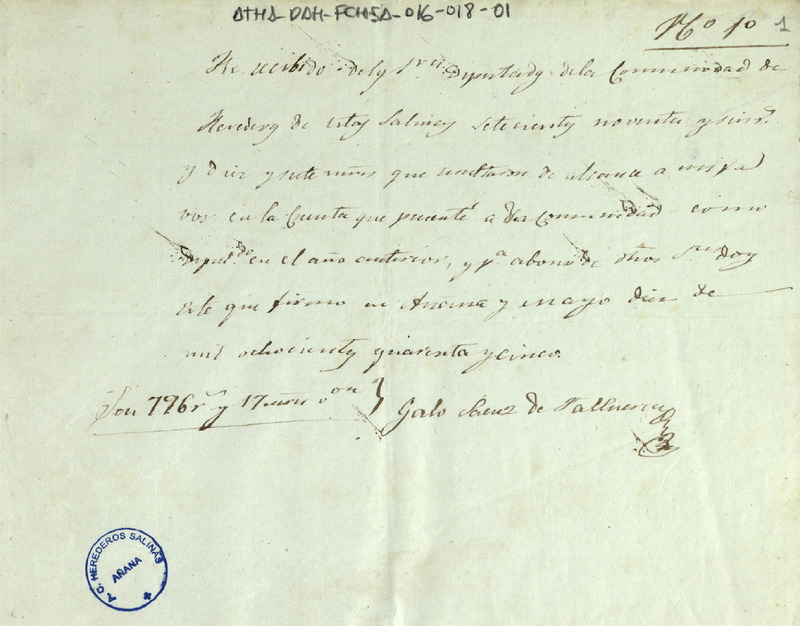 ATHA-DAH-FCHSA-016-018-01
Nº 10 1
He recibido de los Sres Diputados de la Comunidad de
Herederos de estas Salinas setecientos noventa y seis rs
y diez y siete mrs que resultaron de alcance a mi fa
vor en la Cuenta que presenté a dha Comunidad como
Diputdo en el año anterior, y pa abono de dhos Sres doy
este que firmo en Anana y Mayo diez de
mil ochocientos quarenta y cinco.
Son 796 rs y 17 mrs von }
Galo Saenz de
A. C. HEREDEROS SALINAS
AÑANA